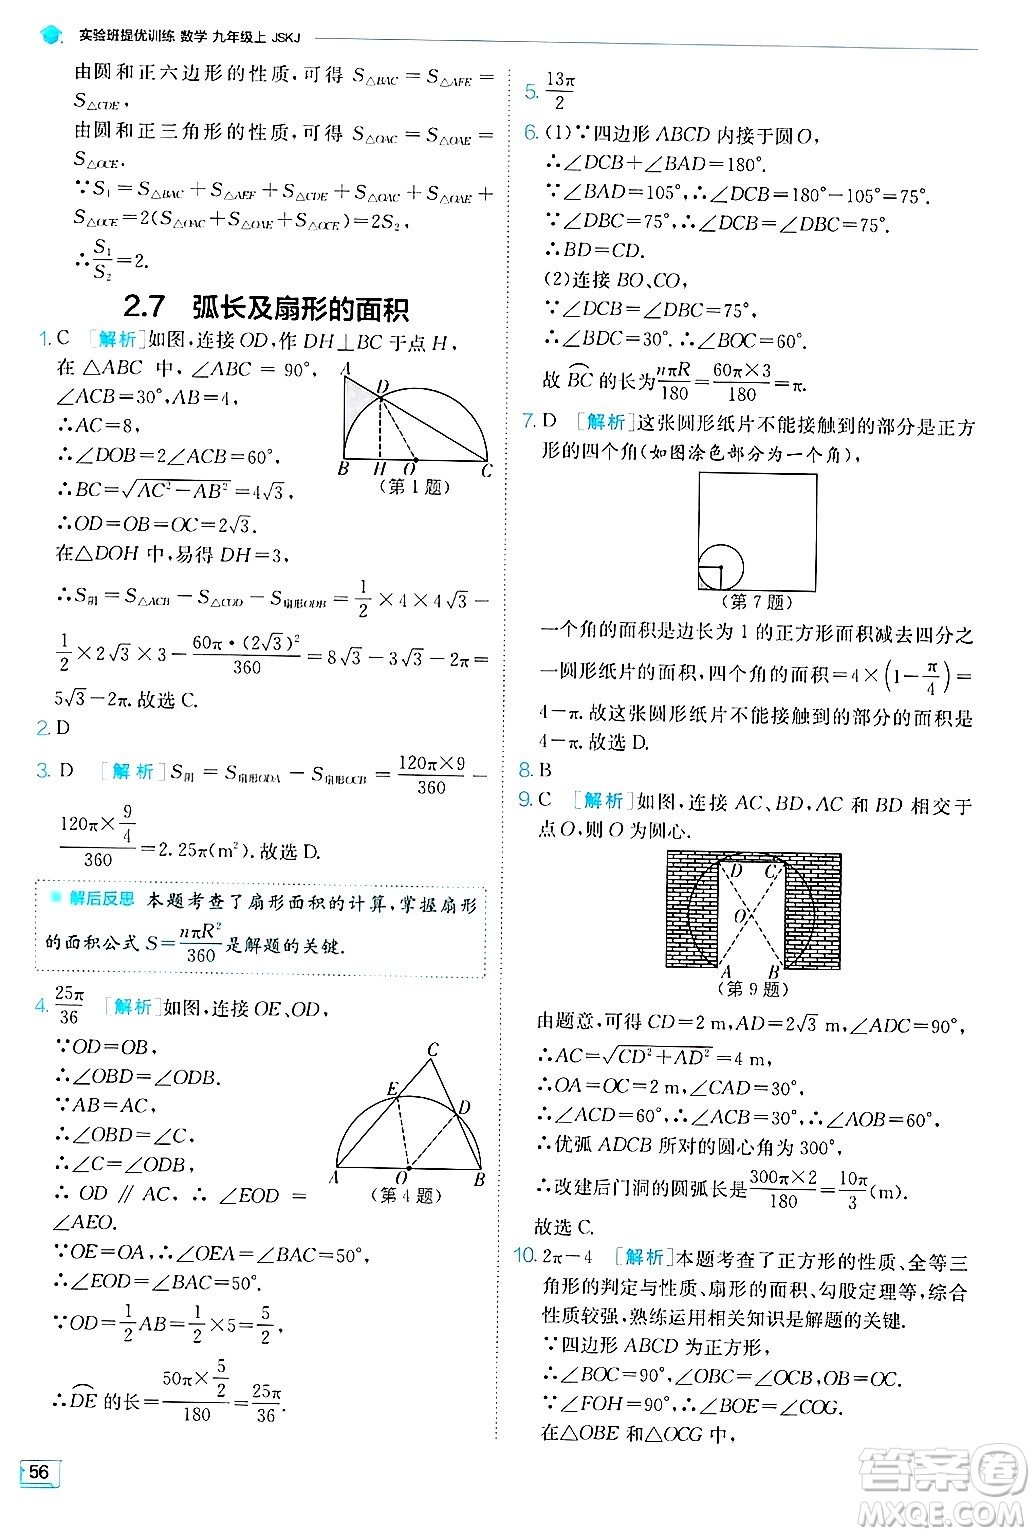 实验班提优训练 数学 九年级上 JSKJ
由圆和正六边形的性质,可得 S△BAC=S△AFE=
S△CDE,
由圆和正三角形的性质,可得 S△OAC=S△OAE=
S△OCE,
∵S₁=S△BAC+S△AEF+S△CDE+S△OAC+S△OAE+
S△OCE=2(S△OAC+S△OAE+S△OCE)=2S₂,
∴S₁/S₂=2.
2.7 弧长及扇形的面积
1. C [解析]如图,连接OD,作DH⊥BC于点H,
在△ABC中,∠ABC=90°,
∠ACB=30°,AB=4,
∴AC=8,
∠DOB=2∠ACB=60°,
∴BC=√(AC²-AB²)=4√3,
∴OD=OB=OC=2√3.
在△DOH中,易得DH=3,
A D B H O C
(第1题)
∴S阴=S△ACB-S△COD-S扇形ODB=1/2×4×4√3-
1/2×2√3×3-60π·(2√3)²/360=8√3-3√3-2π=
5√3-2π.故选C.
2. D
3. D [解析]S阴=S扇形ODA-S扇形OCB=120π×9/360-
120π×9/4/360=2.25π(m²).故选D.
解后反思 本题考查了扇形面积的计算,掌握扇形
的面积公式S=nπR²/360是解题的关键.
4. 25π/36 [解析]如图,连接OE、OD,
∵OD=OB,
∴∠OBD=∠ODB.
∵AB=AC,
∴∠OBD=∠C,
∴∠C=∠ODB,
∴OD∥AC,∴∠EOD=
∠AEO.
C E D A O B
(第4题)
∵OE=OA,∴∠OEA=∠BAC=50°,
∴∠EOD=∠BAC=50°.
∵OD=1/2AB=1/2×5=5/2,
∴DE的长=50π×5/2/180=25π/36.
5. 13π/2
6. (1)∵四边形ABCD内接于圆O,
∴∠DCB+∠BAD=180°.
∵∠BAD=105°,∴∠DCB=180°-105°=75°.
∵∠DBC=75°,∴∠DCB=∠DBC=75°.
∴BD=CD.
(2)连接BO、CO,
∵∠DCB=∠DBC=75°,
∴∠BDC=30°.∴∠BOC=60°.
故BC的长为nπR/180=60π×3/180=π.
7. D [解析]这张圆形纸片不能接触到的部分是正方
形的四个角(如图涂色部分为一个角),
(第7题)
一个角的面积是边长为1的正方形面积减去四分之
一圆形纸片的面积,四个角的面积=4×(1-π/4)=
4-π.故这张圆形纸片不能接触到的部分的面积是
4-π.故选D.
8. B
9. C [解析]如图,连接AC、BD,AC和BD相交于
点O,则O为圆心.
D C O A B
(第9题)
由题意,可得CD=2 m,AD=2√3 m,∠ADC=90°,
∴AC=√(CD²+AD²)=4 m,
∴OA=OC=2 m,∠CAD=30°,
∴∠ACD=60°,∠ACB=30°,∴∠AOB=60°,
∴优弧ADCB所对的圆心角为300°,
∴改建后门洞的圆弧长是300π×2/180=10π/3(m).
故选C.
10. 2π-4 [解析]本题考查了正方形的性质、全等三
角形的判定与性质、扇形的面积、勾股定理等,综合
性质较强,熟练运用相关知识是解题的关键.
∵四边形ABCD为正方形,
∴∠BOC=90°,∠OBC=∠OCB,OB=OC.
∵∠FOH=90°,∴∠BOE=∠COG.
在△OBE和△OCG中,
56
答案卷
MXQE.COM